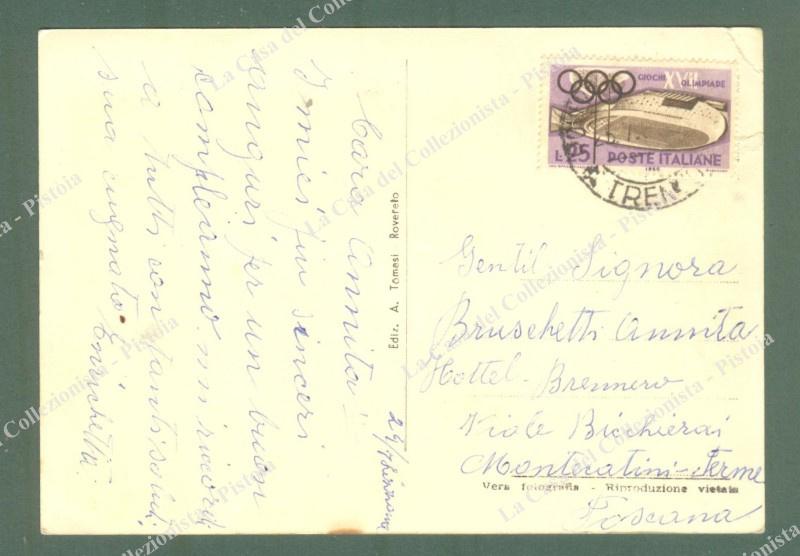 Cara Annita
I miei più sinceri
auguri per un buon
compleanno mi ricordi
a tutti con tanti saluti
sua cugnata Enrichetta
29/7
Ediz. A. Tomasi Rovereto
GIOCHI XVII OLIMPIADE
L.25 POSTE ITALIANE
1960
TREN
Gentil. Signora
Bruschetti Annita
Hottel-Brennero
Viale Bicchierai
Montecatini-Terme
Toscana
Vera fotografia - Riproduzione vietata
La Casa del Collezionista - Pistoia